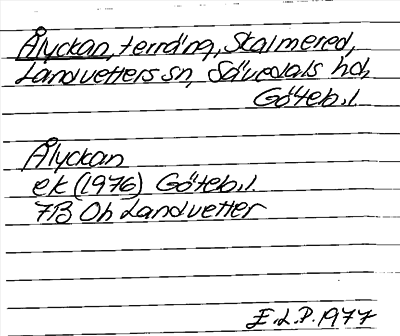 Ålyckan, terräng, Skalmered,
Landvetters sn, Sävedals hd,
Göteb.l.
Ålyckan
ek (1976) Göteb.l.
7B 0h Landvetter
E.L.P. 1977